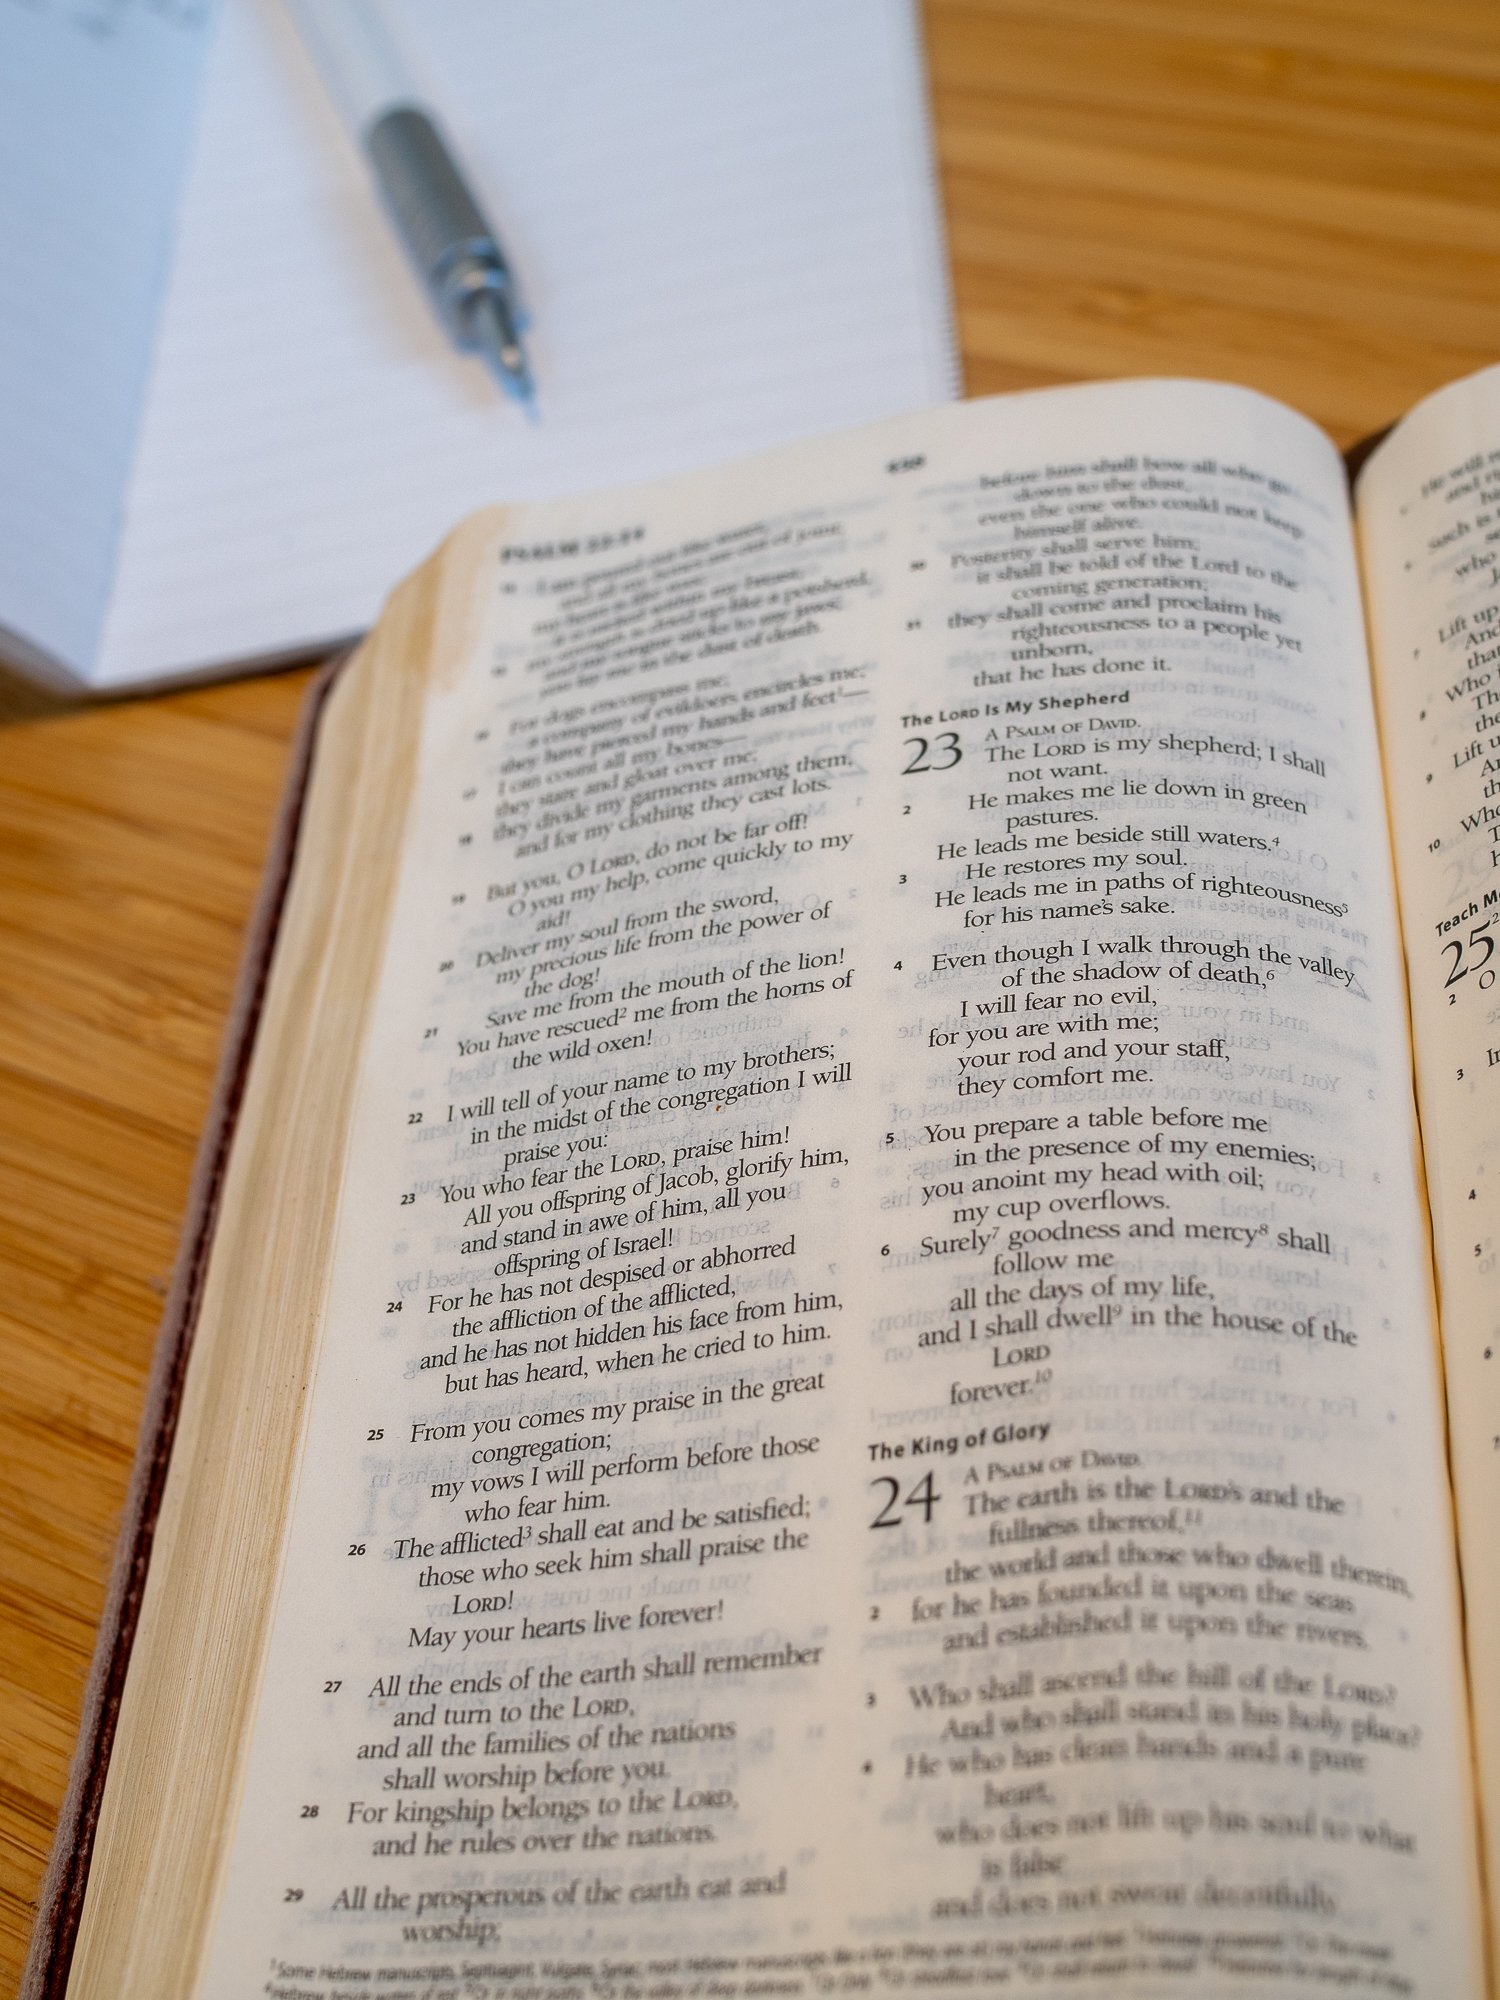 PSALM 22-24
and all my bones are out of joint;
you lay me in the dust of death.
For dogs encompass me;
a company of evildoers encircles me;
they have pierced my hands and feet¹—
I can count all my bones—
they stare and gloat over me;
18 they divide my garments among them,
and for my clothing they cast lots.
19 But you, O LORD, do not be far off!
O you my help, come quickly to my
aid!
20 Deliver my soul from the sword,
my precious life from the power of
the dog!
21 Save me from the mouth of the lion!
You have rescued² me from the horns of
the wild oxen!
22 I will tell of your name to my brothers;
in the midst of the congregation I will
praise you:
23 You who fear the LORD, praise him!
All you offspring of Jacob, glorify him,
and stand in awe of him, all you
offspring of Israel!
24 For he has not despised or abhorred
the affliction of the afflicted,
and he has not hidden his face from him,
but has heard, when he cried to him.
25 From you comes my praise in the great
congregation;
my vows I will perform before those
who fear him.
26 The afflicted³ shall eat and be satisfied;
those who seek him shall praise the
LORD!
May your hearts live forever!
27 All the ends of the earth shall remember
and turn to the LORD,
and all the families of the nations
shall worship before you.
28 For kingship belongs to the LORD,
and he rules over the nations.
29 All the prosperous of the earth eat and
worship;
before him shall bow all who go
down to the dust,
even the one who could not keep
himself alive.
30 Posterity shall serve him;
it shall be told of the Lord to the
coming generation;
31 they shall come and proclaim his
righteousness to a people yet
unborn,
that he has done it.
The LORD Is My Shepherd
23 A PSALM OF DAVID.
The LORD is my shepherd; I shall
not want.
2 He makes me lie down in green
pastures.
He leads me beside still waters.⁴
3 He restores my soul.
He leads me in paths of righteousness⁵
for his name's sake.
4 Even though I walk through the valley
of the shadow of death,⁶
I will fear no evil,
for you are with me;
your rod and your staff,
they comfort me.
5 You prepare a table before me
in the presence of my enemies;
you anoint my head with oil;
my cup overflows.
6 Surely⁷ goodness and mercy⁸ shall
follow me
all the days of my life,
and I shall dwell⁹ in the house of the
LORD
forever.¹⁰
The King of Glory
24 A PSALM OF DAVID.
The earth is the LORD's and the
fullness thereof,¹¹
the world and those who dwell therein,
2 for he has founded it upon the seas
and established it upon the rivers.
3 Who shall ascend the hill of the LORD?
And who shall stand in his holy place?
4 He who has clean hands and a pure
heart,
who does not lift up his soul to what
is false
and does not swear deceitfully.
¹ Some Hebrew manuscripts, Septuagint, Vulgate, Syriac; most Hebrew manuscripts
He will
Such is
who
Lift up
And
that
Who
8
9 Lift u
10 Who
Teach M
25
O
2
3 In
4
5
6